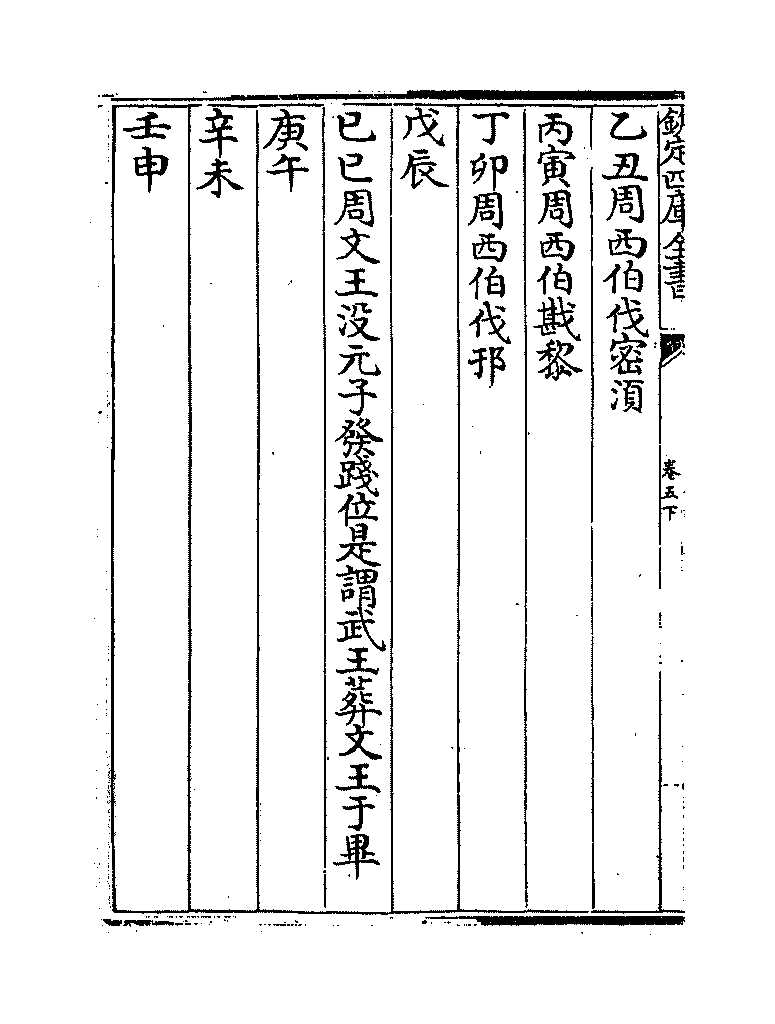 欽定四庫全書
卷五下
乙丑周西伯伐密湏
丙寅周西伯戡黎
丁卯周西伯伐邘
戊辰
已巳周文王没元子發踐位是謂武王葬文王于畢
庚午
辛未
壬申